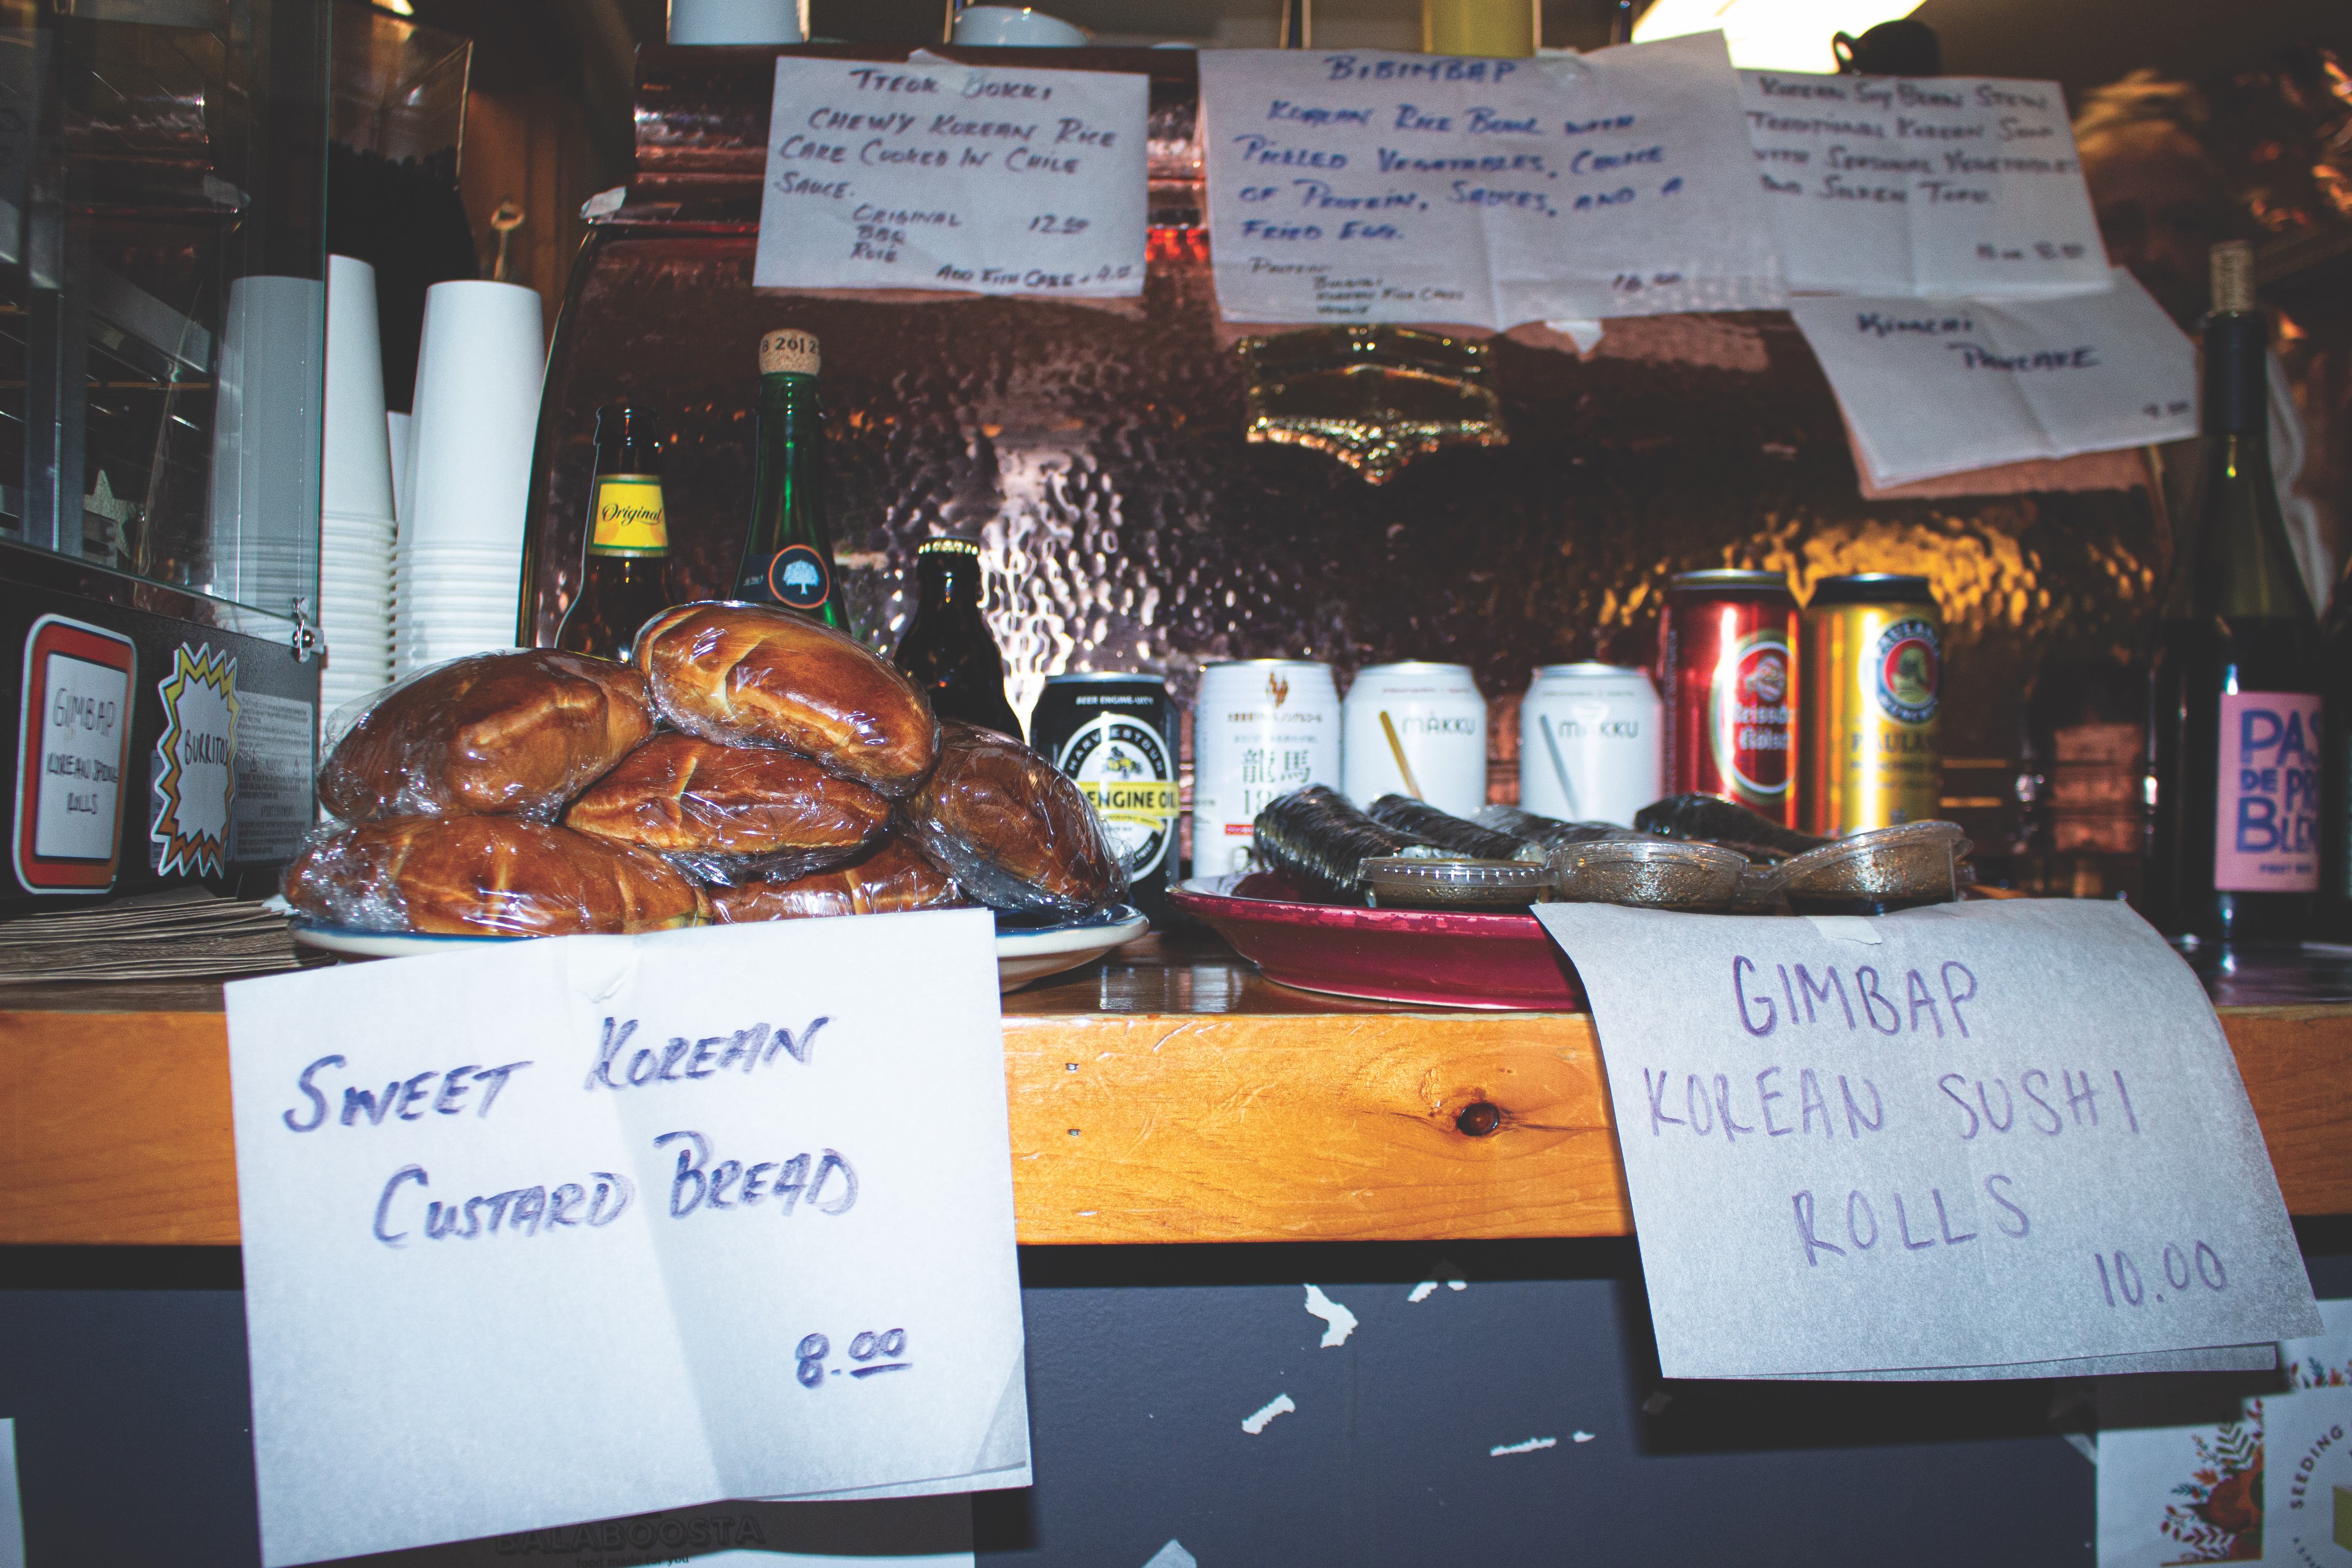 TTEOK BOKKI
CHEWY KOREAN RICE
CAKE COOKED IN CHILE
SAUCE.
ORIGINAL 12.50
BBQ
ROSÉ
ADD FISH CAKE
BIBIMBAP
KOREAN RICE BOWL WITH
PICKLED VEGETABLES, CHOICE
OF PROTEIN, SAUCES, AND A
FRIED EGG.
PROTEIN
BULGOGI
KOREAN FISH CAKES
KOREAN SOY BEAN STEW
TRADITIONAL KOREAN SOUP
WITH SEASONAL VEGETABLES
AND SILKEN TOFU.
KIMCHI
PANCAKE
9.00
Original
BEER ENGINE.CITY
HARVIESTOUN
ENGINE OIL
龍馬
MÄKKU
MÄKKU
PAULAN
PAS
DE PR
BLE
GIMBAP
KOREAN
ROLLS
BURRITOS
SWEET KOREAN
CUSTARD BREAD
8.00
GIMBAP
KOREAN SUSHI
ROLLS
10.00
BALABOOSTA
food made for you
SEEDING